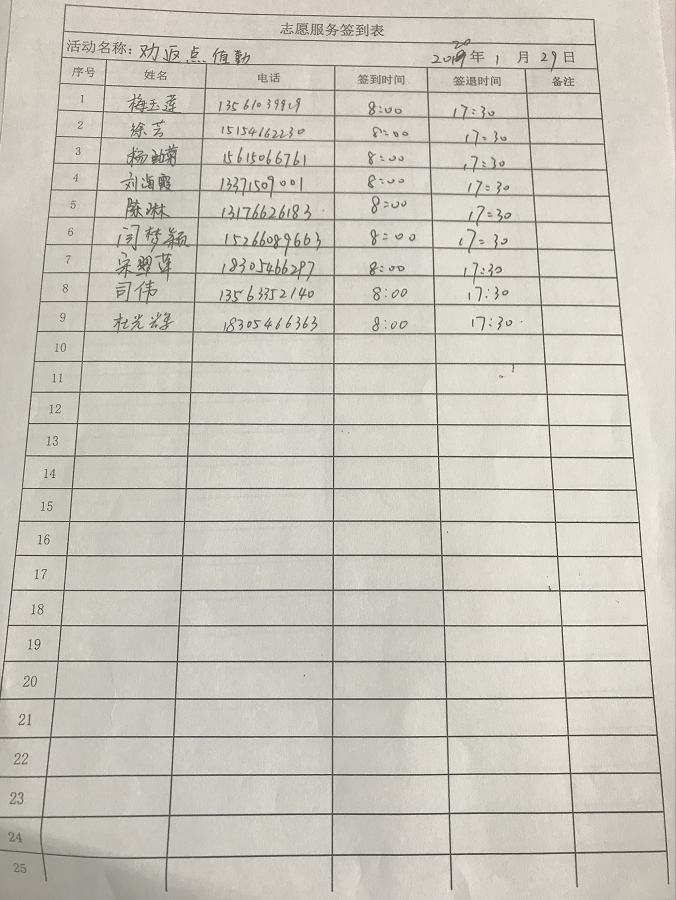 志愿服务签到表
活动名称：劝返点值勤 2020年1月29日
序号 姓名 电话 签到时间 签退时间 备注
1 梅玉莲 13561039909 8:00 17:30
2 徐芸 15154662230 8:00 17:30
3 杨 菊 15615066761 8:00 17:30
4 刘海霞 13371509001 8:00 17:30
5 陈淋 13176626183 8:00 17:30
6 闫梦颖 15266089663 8:00 17:30
7 宋 莲 18305466297 8:00 17:30
8 司伟 13563352140 8:00 17:30
9 杜光 18305466363 8:00 17:30
10
11
12
13
14
15
16
17
18
19
20
21
22
23
24
25